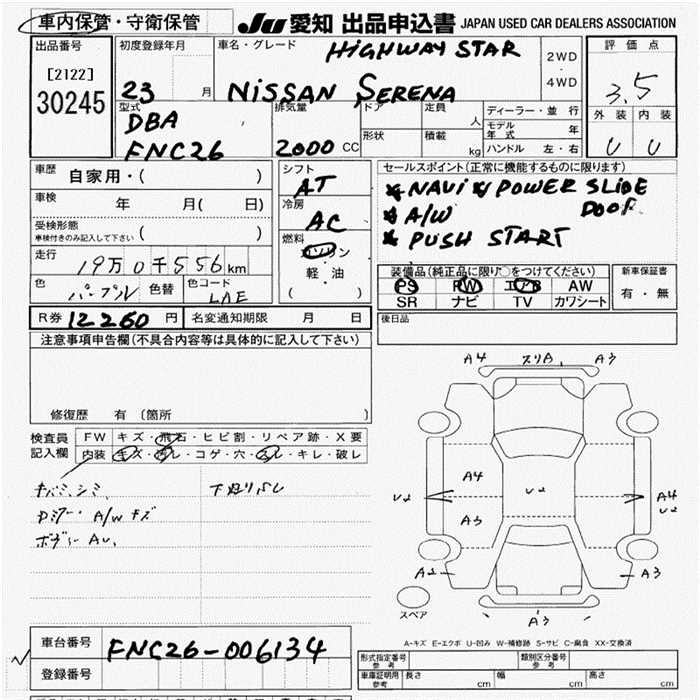 車内保管・守衛保管 JU 愛知 出品申込書 JAPAN USED CAR DEALERS ASSOCIATION
出品番号 初度登録年月 車名・グレード HiGHWAY STAR 2WD ・ 4WD 評価点
[2122] 30245 23 月 NiSSAN SERENA 3.5
型式 DBA FNC26 排気量 2000 CC ドア 定員 人 ディーラー・並行 外装 内装
形状 積載 kg モデル年式 年 U U
ハンドル 左・右
車歴 自家用・( ) シフト AT セールスポイント(正常に機能するものに限ります)
車検 年 月( 日) 冷房 AC NAVi POWER SLIDE DOOR
受検形態 車検付きのみ記入して下さい ( ) A/W
走行 19万0千556km 燃料 ガソリン 軽・油 ( ) PUSH START
色 パープル 色替 色コード LAE 装備品(純正品に限り○をつけてください) 新車保証書
PS PW エアB AW 有・無
SR ナビ TV カワシート
R券 12260 円 名変通知期限 月 日 後日品
注意事項申告欄(不具合内容等は具体的に記入して下さい)
修復歴 有 (箇所 )
検査員記入欄 FW キズ・飛石・ヒビ割・リペア跡・X要
内装 キズ・汚レ・コゲ・穴・スレ・キレ・破レ
A4 スリA A3
A4 U2 U2 A4 U2
A3
A2 A3
A3
スペア
A-キズ E-エクボ U-凹み W-補修跡 S-サビ C-腐食 XX-交換済
車台番号 FNC26-006134
登録番号
形式指定番号 参考 類別区分番号 参考
車庫証明用 参考 長さ cm 幅 cm 高さ cm